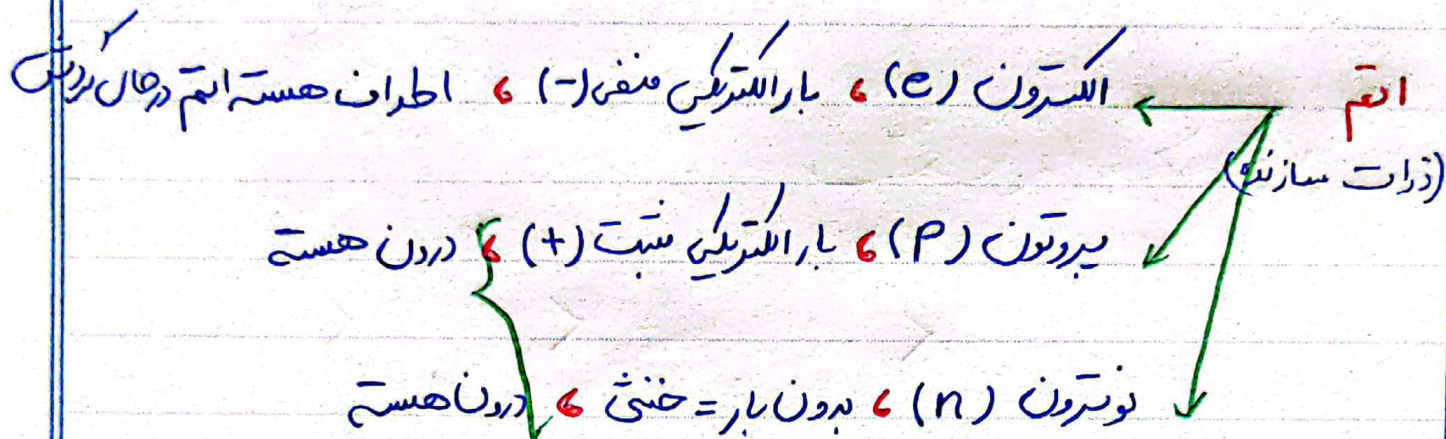 اتم الکترون (e) ، بار الکتریکی منفی (-) ، اطراف هسته اتم درحال گردش
(ذرات سازنده)
پروتون (P) ، بار الکتریکی مثبت (+) ، درون هسته
نوترون (n) ، بدون بار = خنثی ، درون هسته